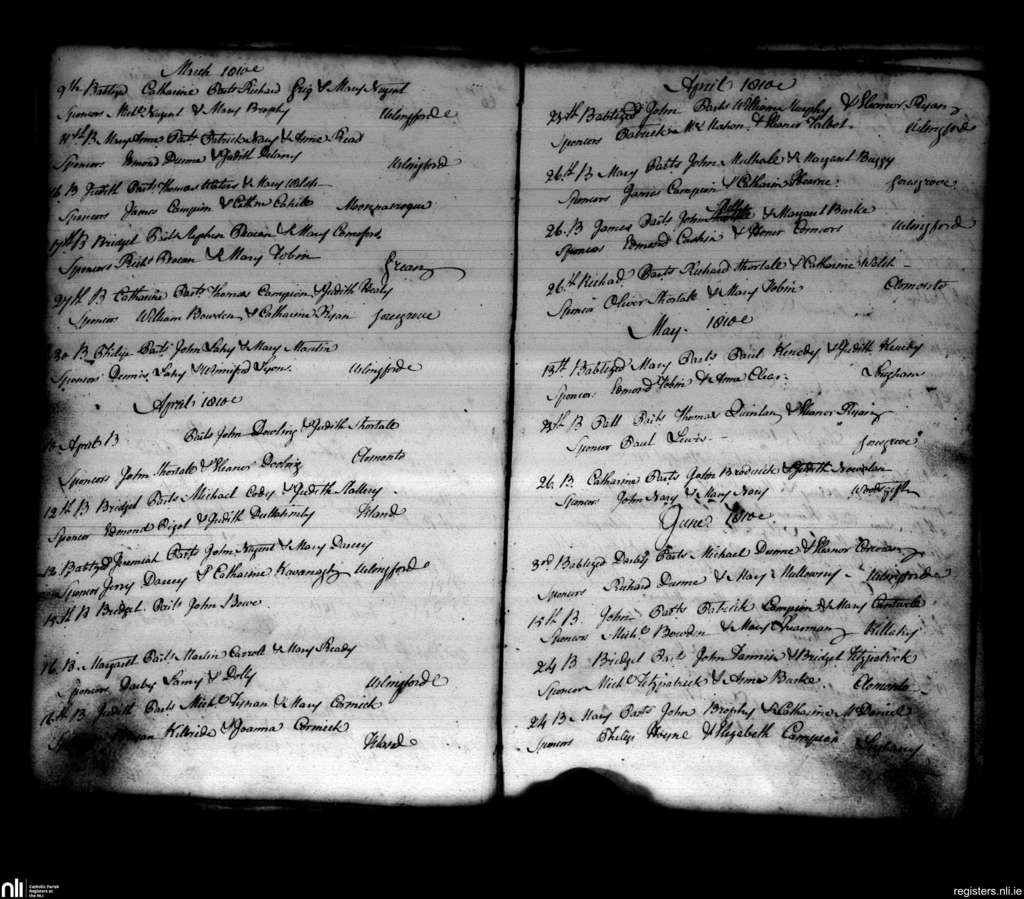 March 1810
9th Baptized Catharine Parts Richard Grig & Mary Nugent
Sponsors Michl Nugent & Mary Brophy Urlingford
11th B Mary Anne Parts Patrick Nary & Anne Read
Sponsors Edmond Dunne & Judith Delany Urlingford
16 B Judith Parts Thomas Waters & Mary Walsh
Sponsors James Campion & Cathn Cahill
17th B Bridget Parts Stephen & Mary Comerford
Sponsors Richd & Mary Tobin Grean
27th B Catharine Parts Thomas Campion & Judith Healy
Sponsors William Bowden & Catharine Ryan Foresgrove
30 B Philip Parts John Lahy & Mary Martin
Sponsors Dennis Lahy & Winnifred Lyons. Urlingford
April 1810
10 April B Parts John Dowling & Judith Shortale
Sponsors John Shortale & Eleanor Dooling Clomonto
12th B Bridget Parts Michael Cody & Judith Slattery
Sponsors Edmond & Judith Island
13 Baptizd Jeremiah Parts John Nugent & Mary Darcey
Sponsors Jerry Darcey & Catharine Kavanagh Urlingford
15th B Bridget Parts John Bowe
16 B. Margaret Parts Martin Carroll & Mary Ready
Sponsors Darby & Dolly Urlingford
16th B Judith Parts Michl Tynan & Mary Cormick
Kilbride & Joanna Cormick
Island
April 1810
25th Baptized John Parts William Murphy & Eleanor Ryan
Sponsors Patrick Mc Mahon & Eleanor Talbot. Urlingford
26th B Mary Parts John Mulhale & Margaret Buggy
Sponsors James Campion & Catharin Hearne Foresgrove
26. B James Parts John & Margaret Burke
Sponsors Edmond & Honor Connors Urlingford
26th Richard Parts Richard Shortale & Catharine Walsh
Sponsor Oliver Shortale & Mary Tobin Clomonto
May 1810
13th Baptized Mary Parts Paul Kenedy & Judith Kenedy
Sponsors Edmond Tobin & Anna Clear.
23th B Patt Parts Thomas Quinlan & Eleanor Ryan
Sponsor Paul Lewis Foresgrove
26. B. Catharine Parts John Broderick & Judith Nowlan
Sponsors John Nary & Mary Nary Woodsgift
June 1810
3rd Baptized Darby Parts Michael Dunne & Eleanor
Sponsors Richard Dunne & Mary Mullowney Urlingford
15th B. John Parts Patrick Campion & Mary Cantwell
Sponsors Michl Bowden & Mary Killahy
24 B Bridget Parts John Fannin & Bridget Fitzpatrick
Sponsors Michl Fitzpatrick & Anne Burke. Clomonto
24 B Mary Parts John Brophy & Catharine McDaniel
Sponsors Philip Hoyne & Elizabeth Campion
nli Catholic Parish
Registers at
the NLI
registers.nli.ie